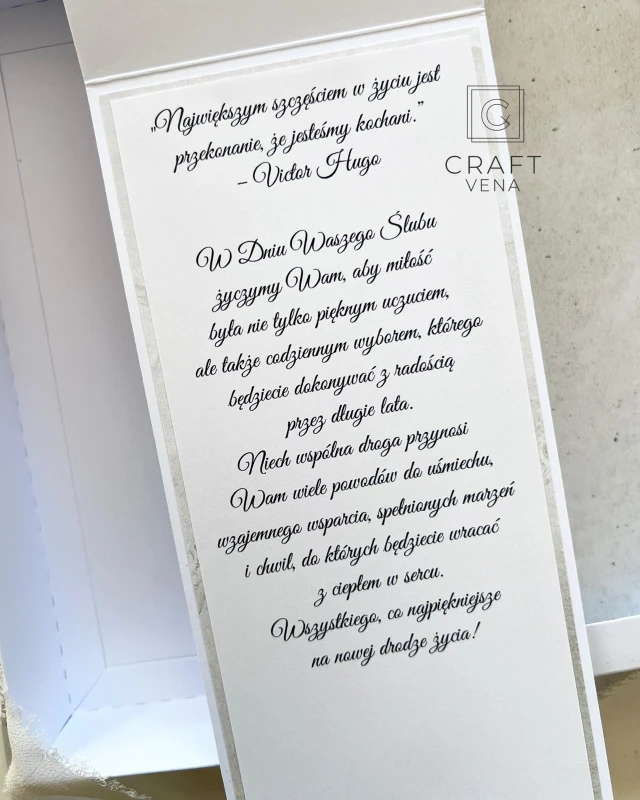 „Największym szczęściem w życiu jest
przekonanie, że jesteśmy kochani.”
– Victor Hugo
W Dniu Waszego Ślubu
życzymy Wam, aby miłość
była nie tylko pięknym uczuciem,
ale także codziennym wyborem, którego
będziecie dokonywać z radością
przez długie lata.
Niech wspólna droga przynosi
Wam wiele powodów do uśmiechu,
wzajemnego wsparcia, spełnionych marzeń
i chwil, do których będziecie wracać
z ciepłem w sercu.
Wszystkiego, co najpiękniejsze
na nowej drodze życia!
CRAFT
VENA